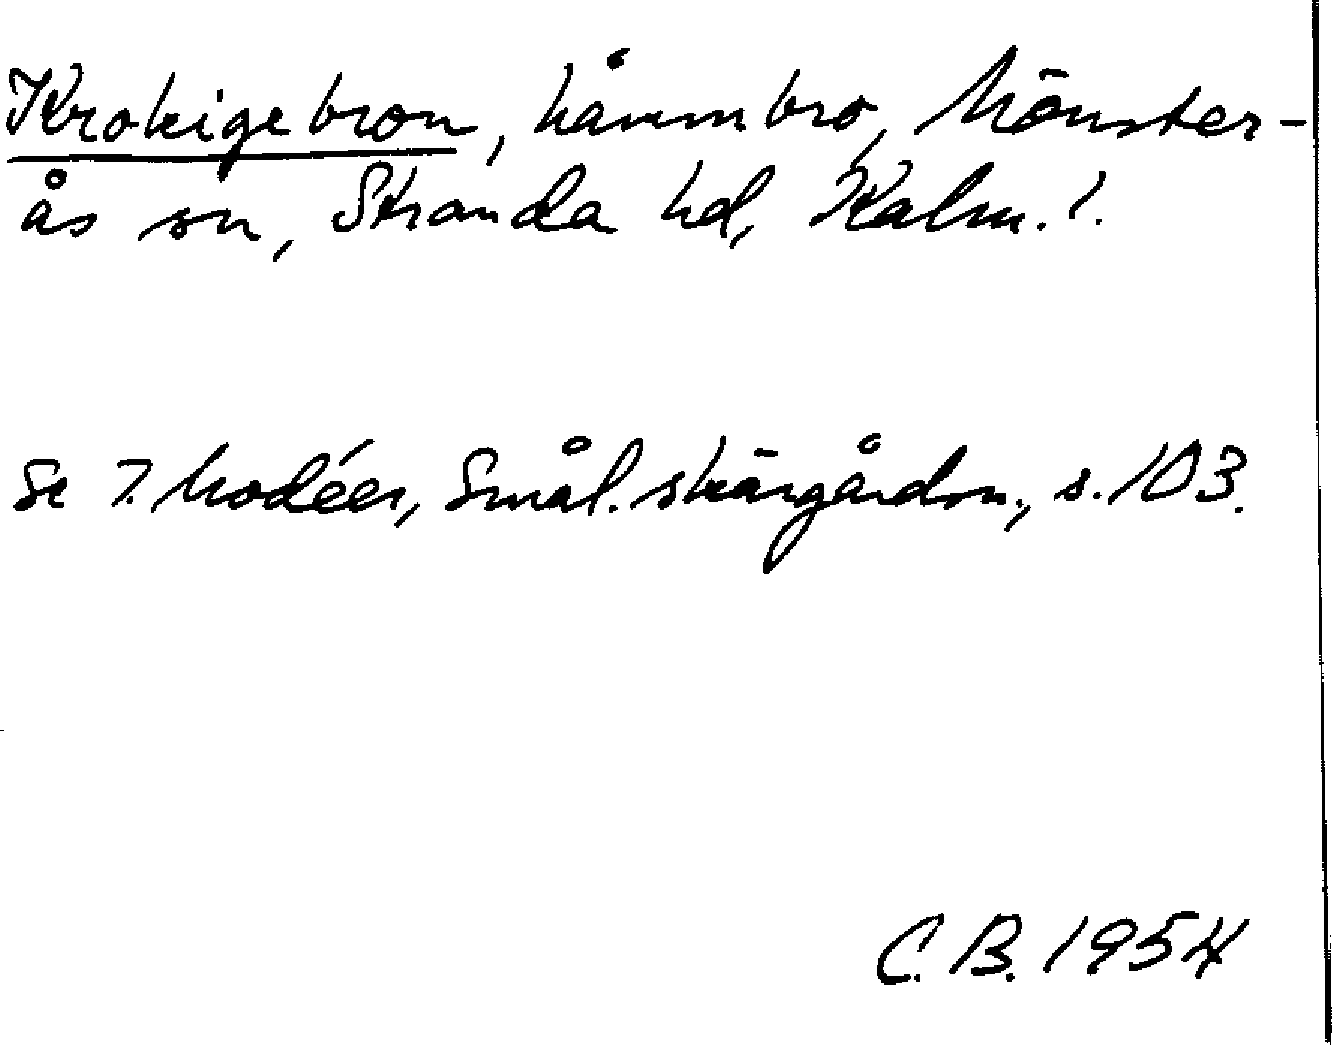 Krokigebron, Mönster-
ås sn, Stranda hd, Kalm. l.
Se I. Modéer, Smål. skärgårdsn., s. 103.
C. B. 1954